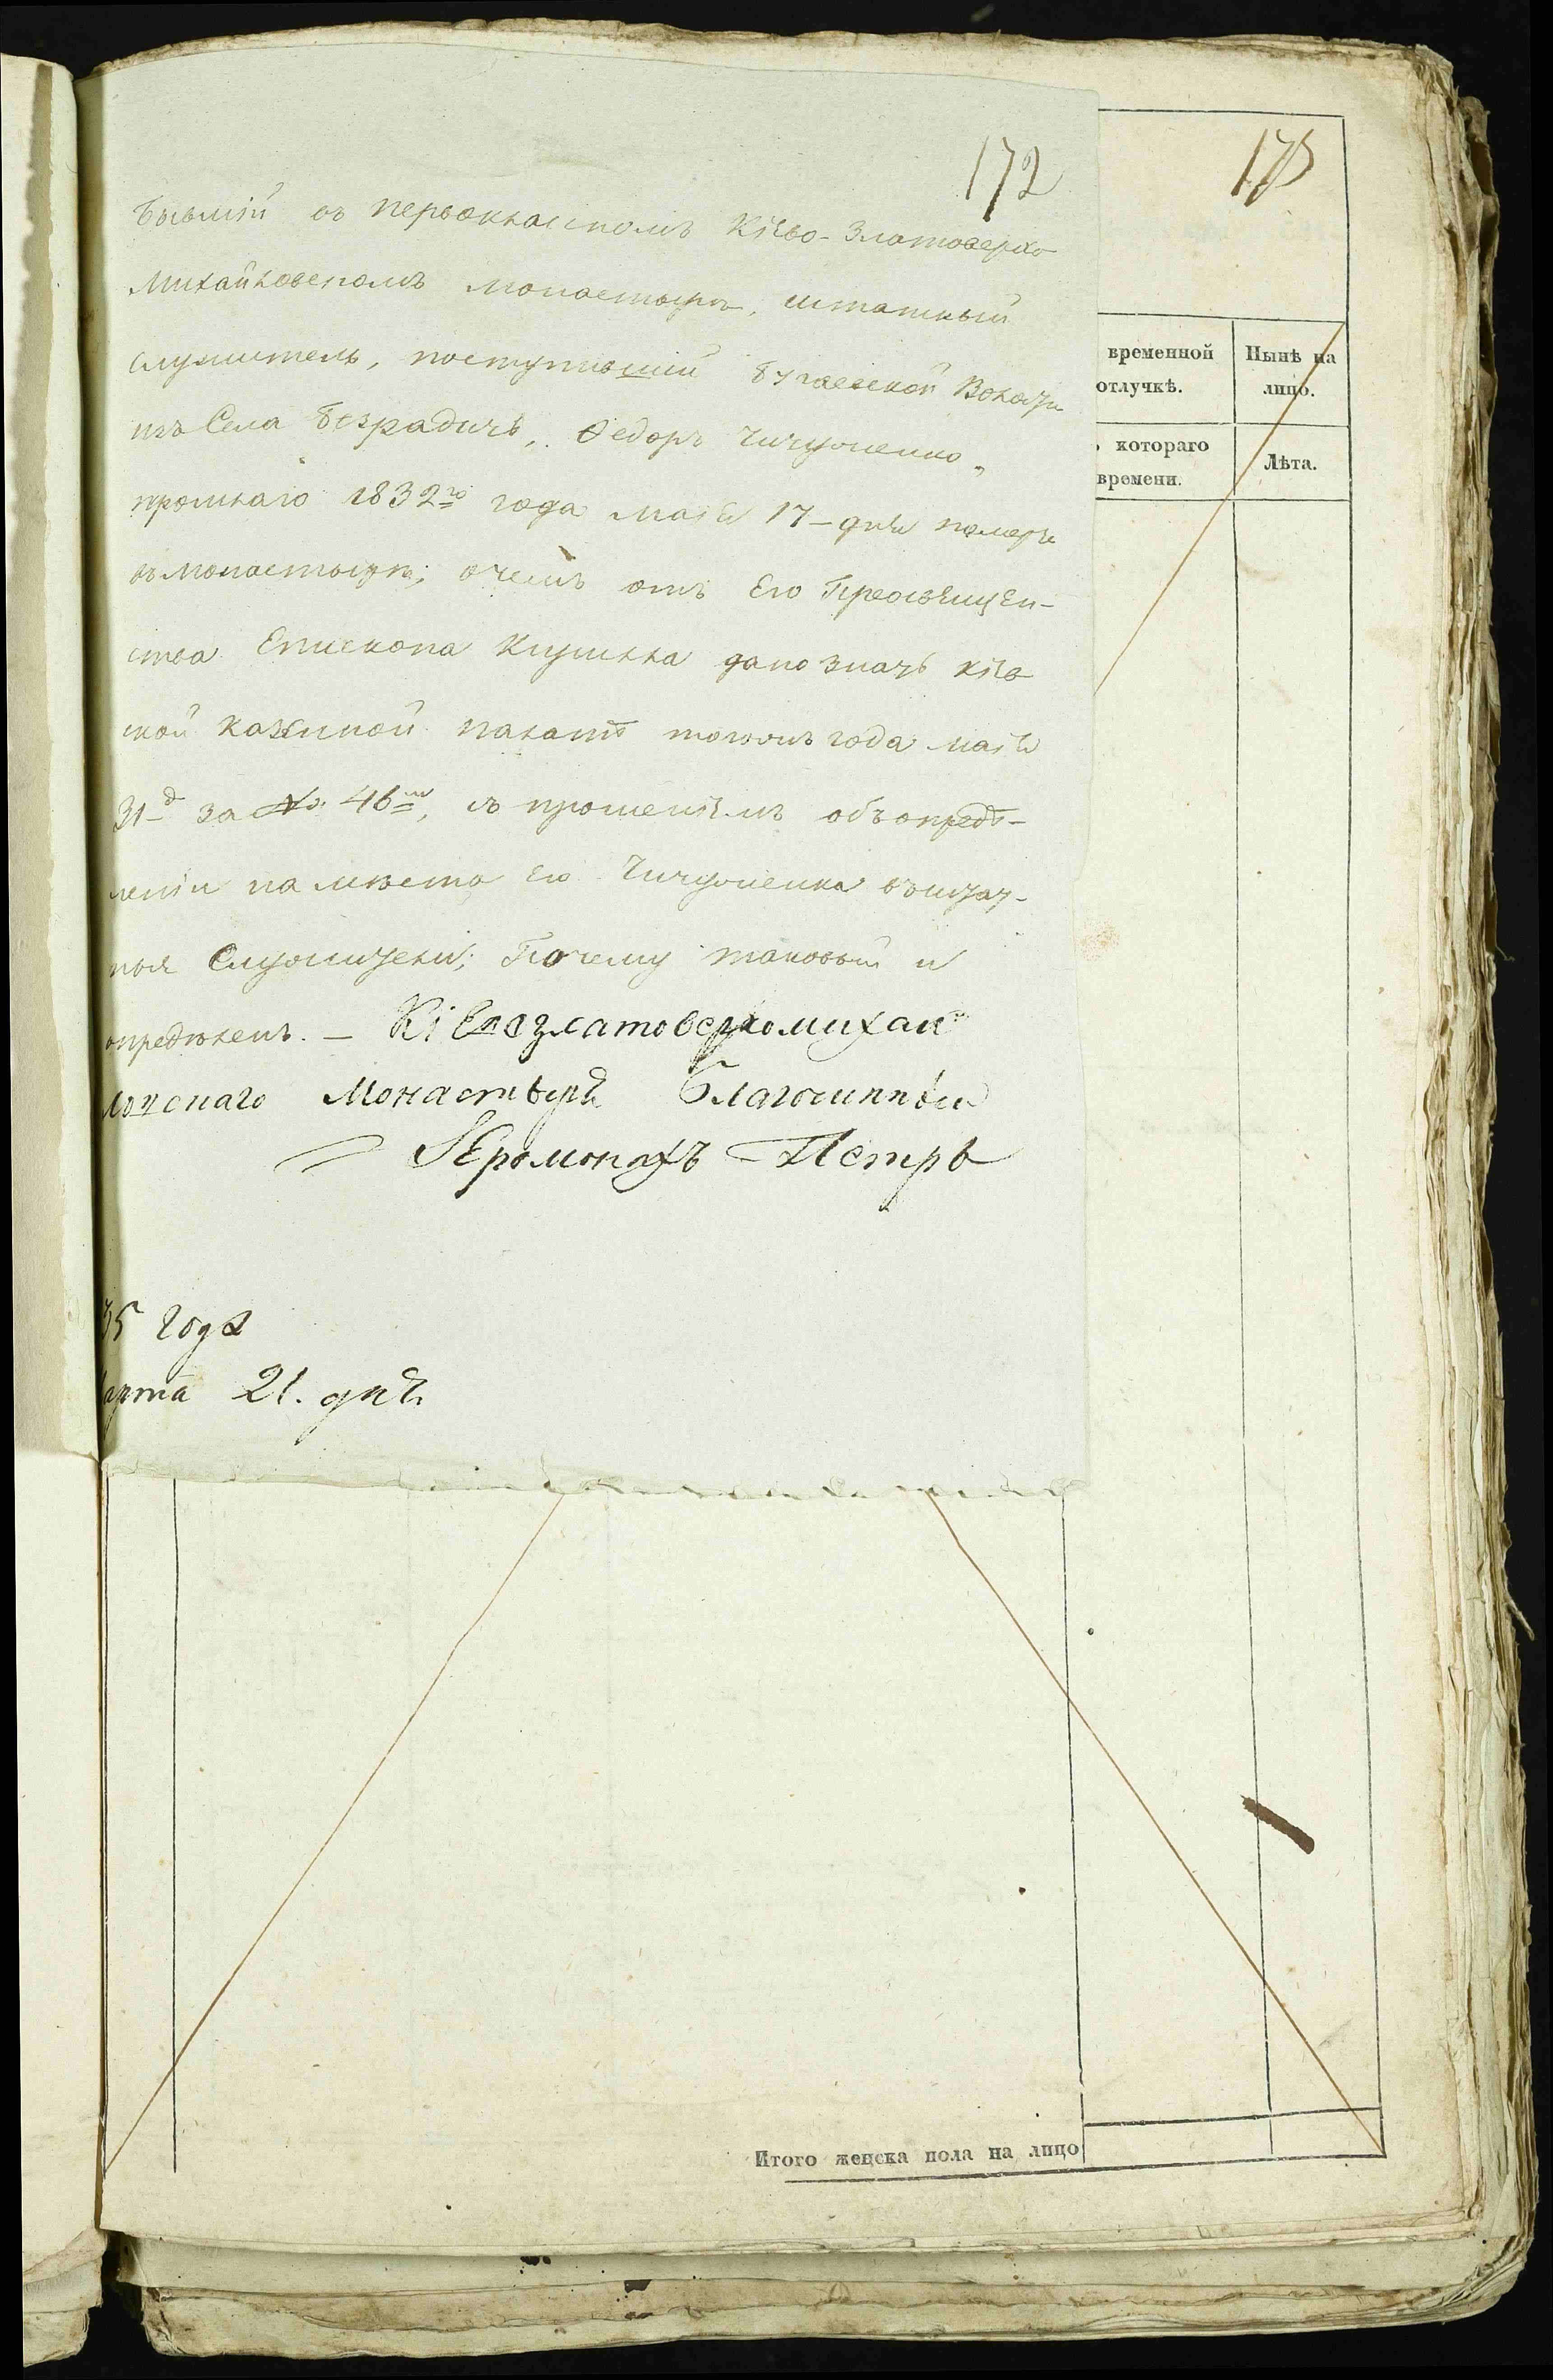 172
175
Бывшій въ первокласномъ Кіево-Златоверхо
Михайловскомъ монастырѣ, штатный
служитель, поступившій Бугаевской Волости
изъ Села Безрадичъ, Ѳедоръ
прошлаго 1832го года маія 17-дня померъ
въ монастырѣ; о чемъ отъ Его Преосвящен-
ства Епископа Кирилла дано знать Кіев
ской Казенной палатѣ тогожъ года маія
31-д за № 46мъ, съ прошеніемъ объ опредѣ-
леніи на мѣсто его въ штат-
ныя Служители; Почему таковый и
опредѣленъ. — Кіевозлатоверхомихай
ловскаго Монастыря Благочинный
Іеромонахъ Петръ
35 года
марта 21. дня
временной
отлучкѣ.
Нынѣ на
лицо.
котораго
времени.
Лѣта.
Итого женска пола на лицо